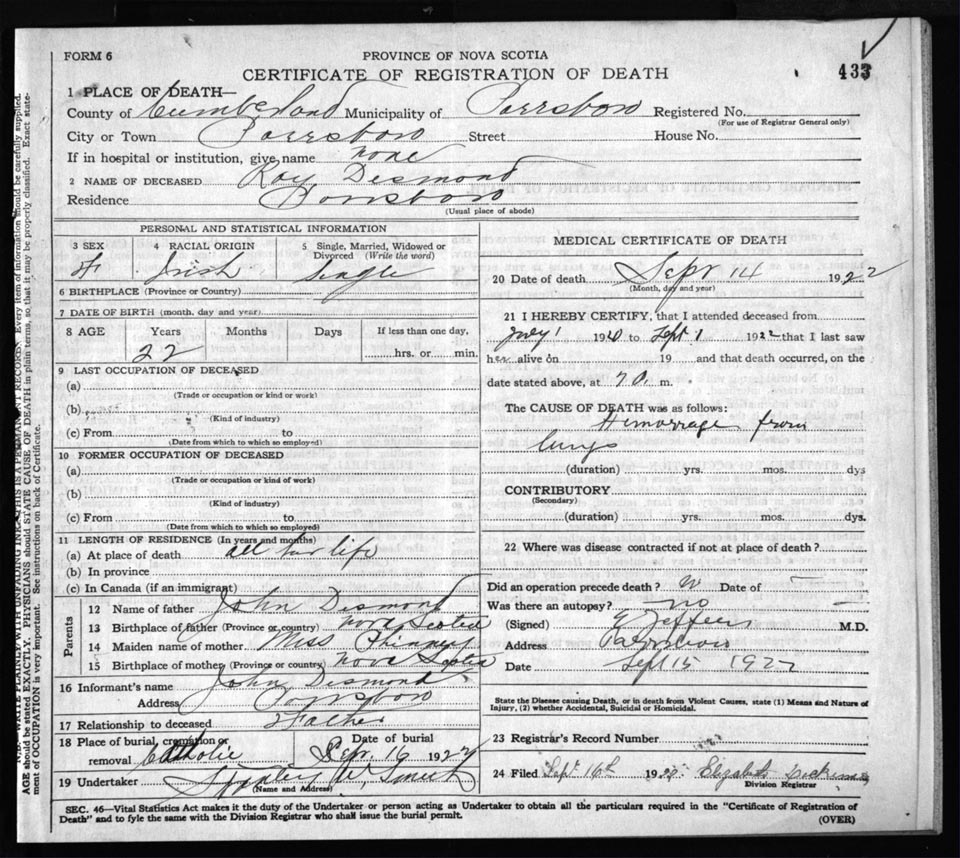 FORM 6
PROVINCE OF NOVA SCOTIA
433
CERTIFICATE OF REGISTRATION OF DEATH
1 PLACE OF DEATH—
County of Cumberland Municipality of Parrsboro Registered No.
(For use of Registrar General only)
City or Town Parrsboro Street House No.
If in hospital or institution, give name none
2 NAME OF DECEASED Ray Desmond
Residence Parrsboro
(Usual place of abode)
PERSONAL AND STATISTICAL INFORMATION
3 SEX
4 RACIAL ORIGIN
5 Single, Married, Widowed or Divorced (Write the word)
F Irish Single
6 BIRTHPLACE (Province or Country)
7 DATE OF BIRTH (month, day and year)
8 AGE Years Months Days If less than one day,
22 hrs. or min.
9 LAST OCCUPATION OF DECEASED
(a)
(Trade or occupation or kind or work)
(b)
(Kind of industry)
(c) From to
(Date from which to which so employed)
10 FORMER OCCUPATION OF DECEASED
(a)
(Trade or occupation or kind of work)
(b)
(Kind of industry)
(c) From to
(Date from which to which so employed)
11 LENGTH OF RESIDENCE (In years and months)
(a) At place of death all her life
(b) In province
(c) In Canada (if an immigrant)
Parents
12 Name of father John Desmond
13 Birthplace of father (Province or country) Nova Scotia
14 Maiden name of mother Miss
15 Birthplace of mother (Province or country) Nova Scotia
16 Informant's name John Desmond
Address Parrsboro
17 Relationship to deceased Father
18 Place of burial, cremation or removal Catholic Date of burial Sep. 16 1922
19 Undertaker Stanley W.
(Name and Address)
MEDICAL CERTIFICATE OF DEATH
20 Date of death Sept 14 1922
(Month, day and year)
21 I HEREBY CERTIFY, that I attended deceased from
1920 to Sept 1 1922 that I last saw
her alive on 19 and that death occurred, on the
date stated above, at 7 a. m.
The CAUSE OF DEATH was as follows:
Hemorrage from
lungs
(duration) yrs. mos. dys
CONTRIBUTORY
(Secondary)
(duration) yrs. mos. dys.
22 Where was disease contracted if not at place of death?
Did an operation precede death? Date of —
Was there an autopsy? no —
(Signed) Jeffers M.D.
Address Parrsboro
Date Sept 15 1922
State the Disease causing Death, or in death from Violent Causes, state (1) Means and Nature of Injury, (2) whether Accidental, Suicidal or Homicidal.
23 Registrar's Record Number
24 Filed Sept. 16th 1922 Elizabeth
Division Registrar
SEC. 46—Vital Statistics Act makes it the duty of the Undertaker or person acting as Undertaker to obtain all the particulars required in the "Certificate of Registration of
Death" and to fyle the same with the Division Registrar who shall issue the burial permit.
(OVER)
WRITE PLAINLY WITH UNFADING INK—THIS IS A PERMANENT RECORD. Every item of information should be carefully supplied.
AGE should be stated EXACTLY. PHYSICIANS should STATE CAUSE OF DEATH in plain terms, so that it may be properly classified. Exact state-
ment of OCCUPATION is very important. See instructions on back of Certificate.